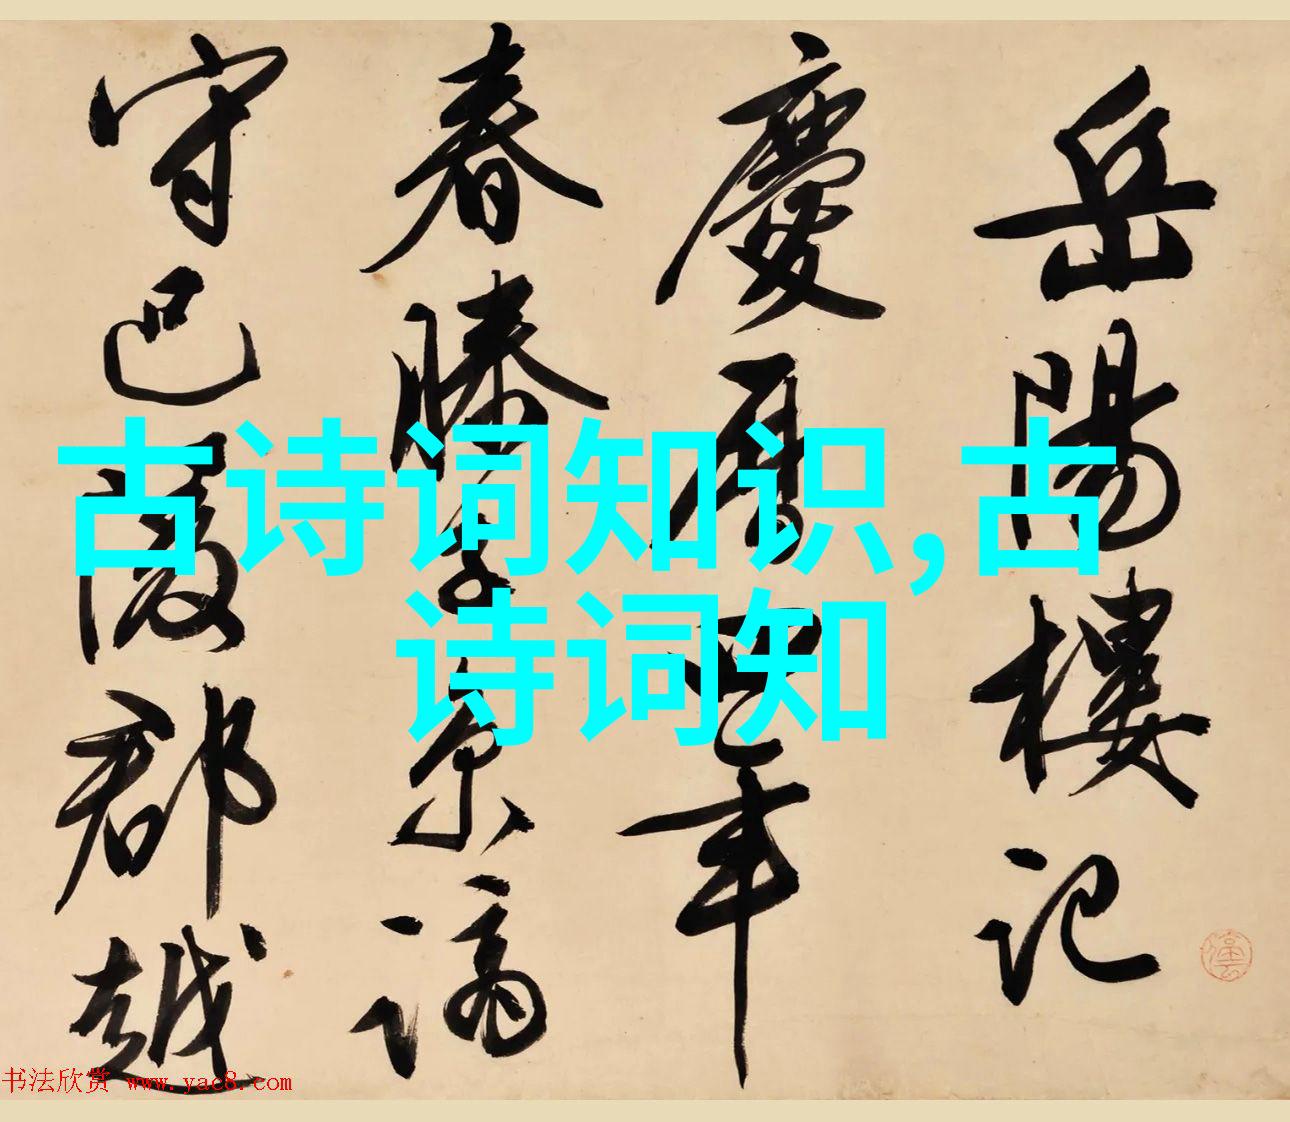 岳陽樓記
慶曆四年
春滕子京謫
守巴陵郡越
古诗词知识,古
诗词知
书法欣赏 www.yac8.com